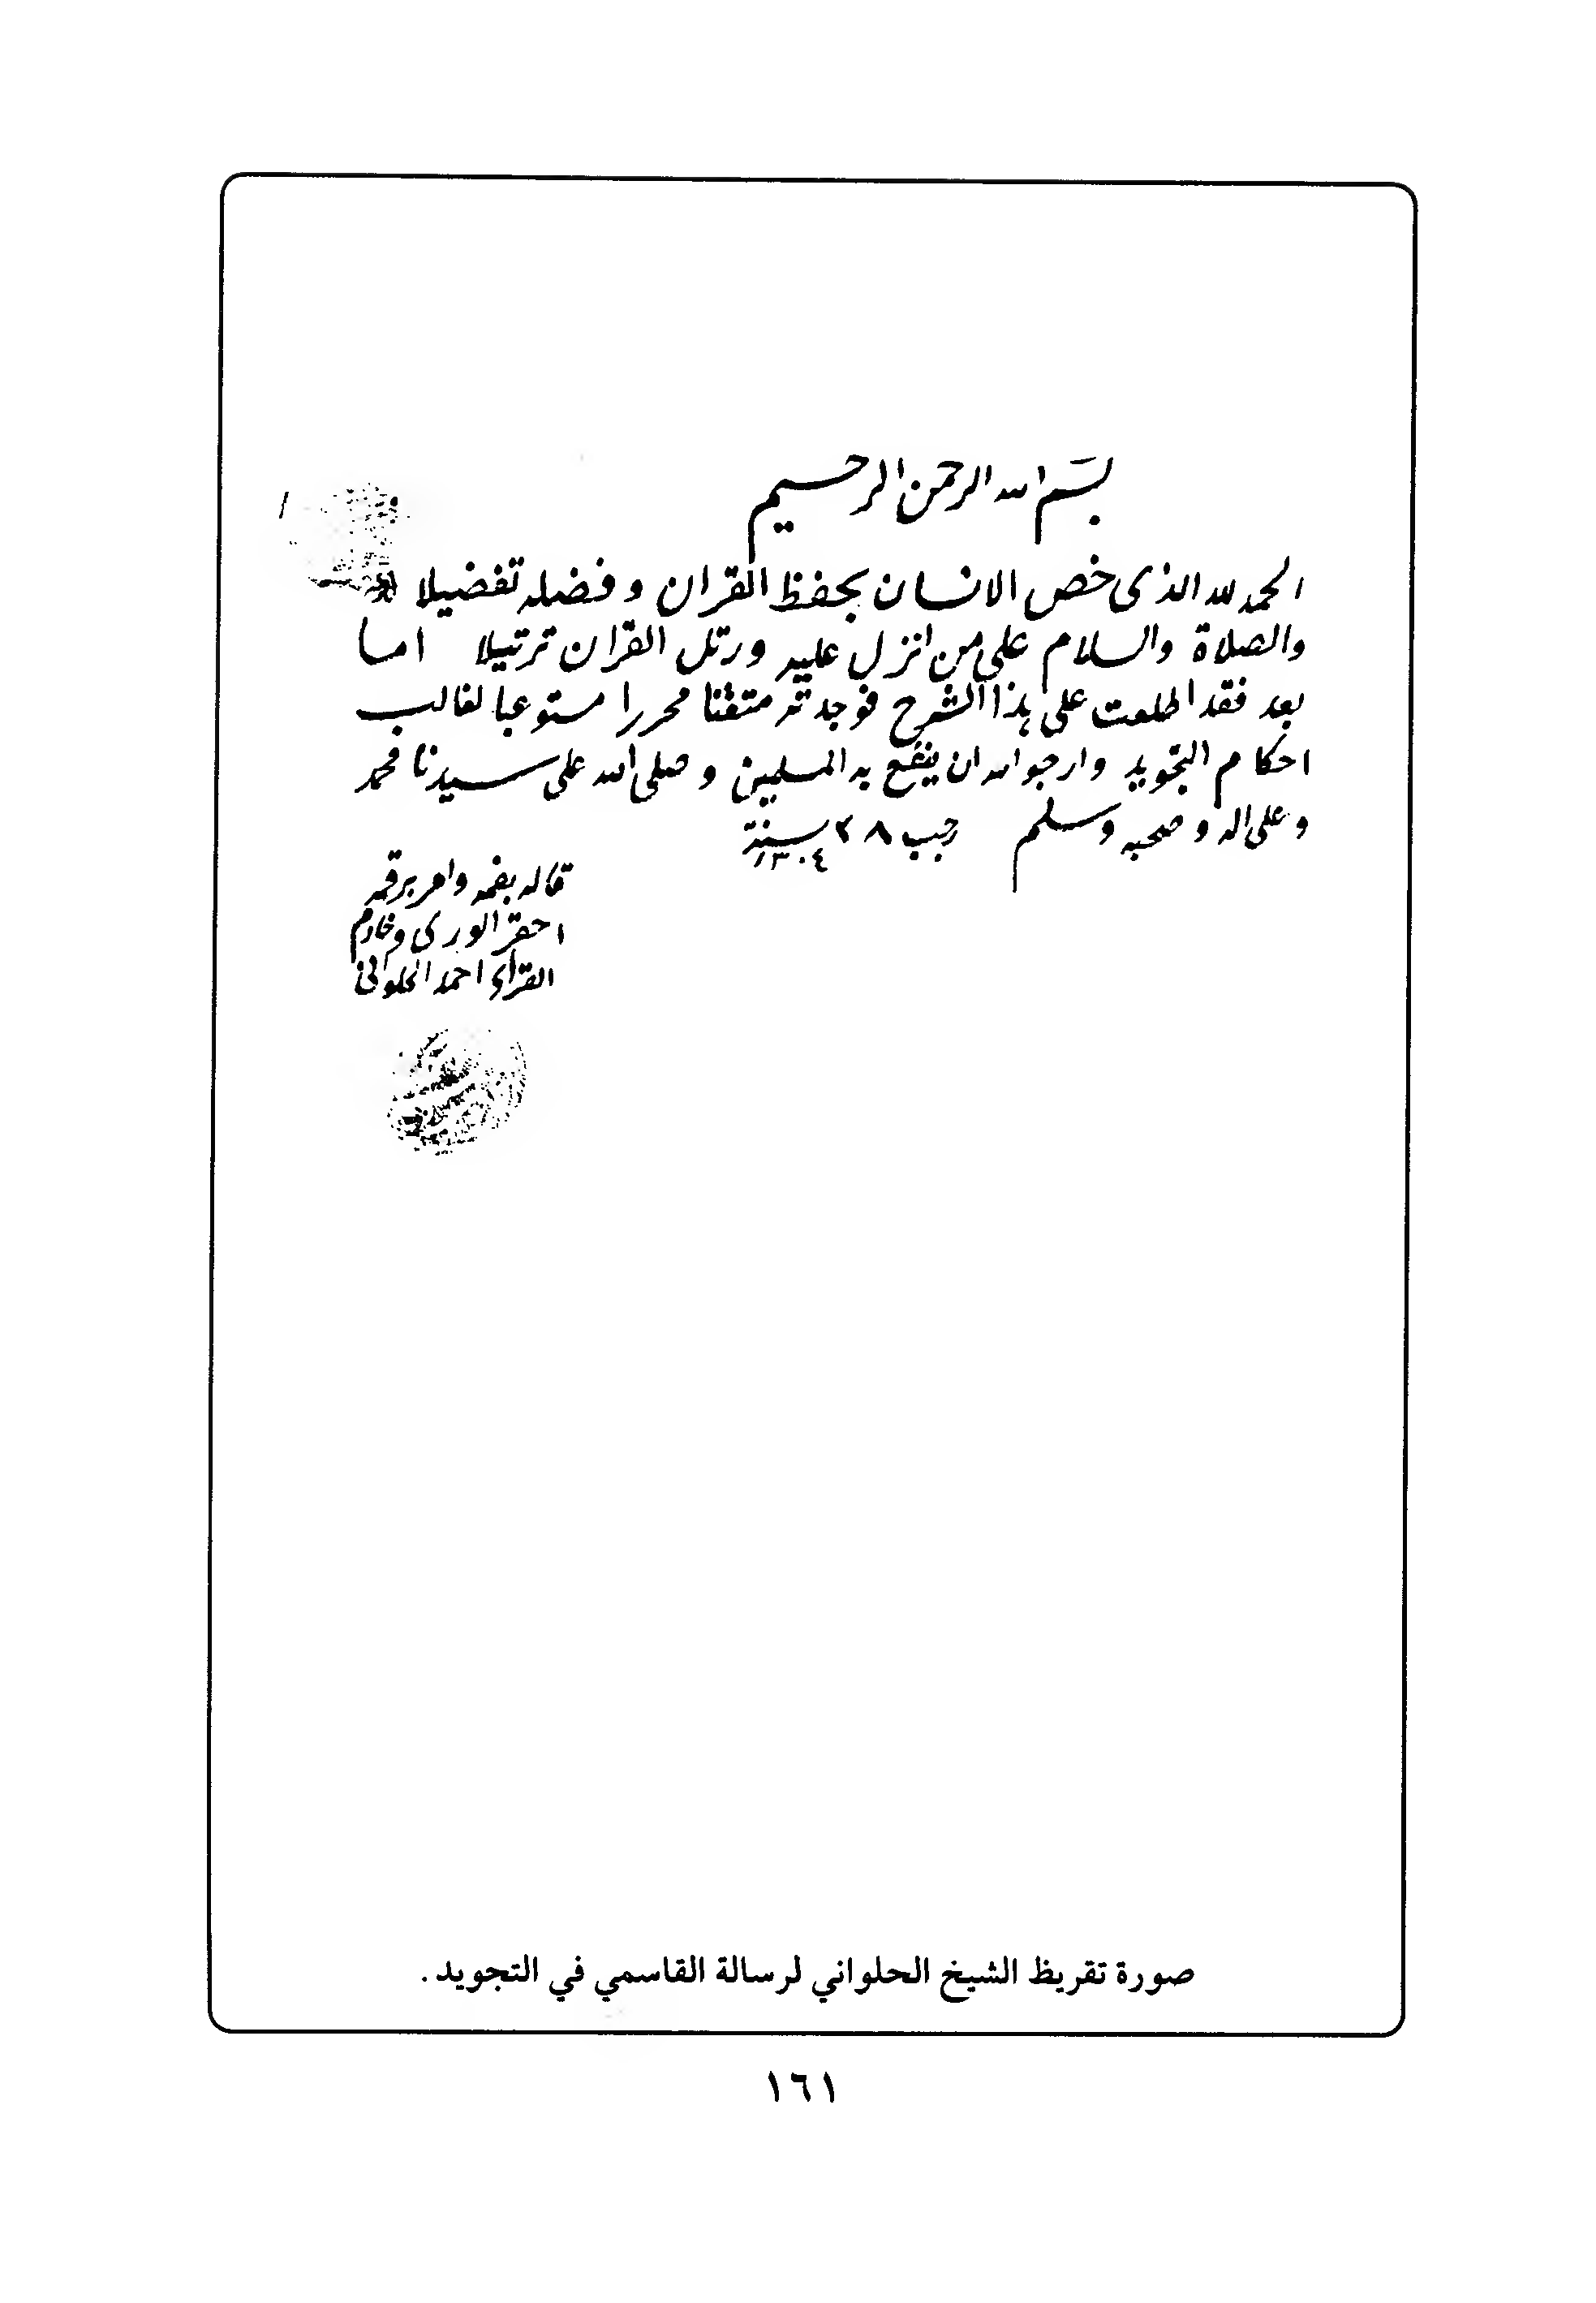 بسم الله الرحمن الرحيم
الحمد لله الذى خص الانسان بحفظ القران وفضله تفضيلا
والصلاة والسلام على من انزل عليه ورتل القران ترتيلا اما
بعد فقد اطلعت على هذا الشرح فوجدته متقنا محررا مستوعبا لغالب
احكام التجويد وارجو الله ان ينفع به المسلمين وصلى الله على سيدنا محمد
وعلى اله وصحبه وسلم رجب ٢٨ سنة ١٣٠٤
قاله بفمه وامر برقمه
احقر الورى وخادم
القراء احمد الحلوانى
صورة تقريظ الشيخ الحلواني لرسالة القاسمي في التجويد.
١٦١